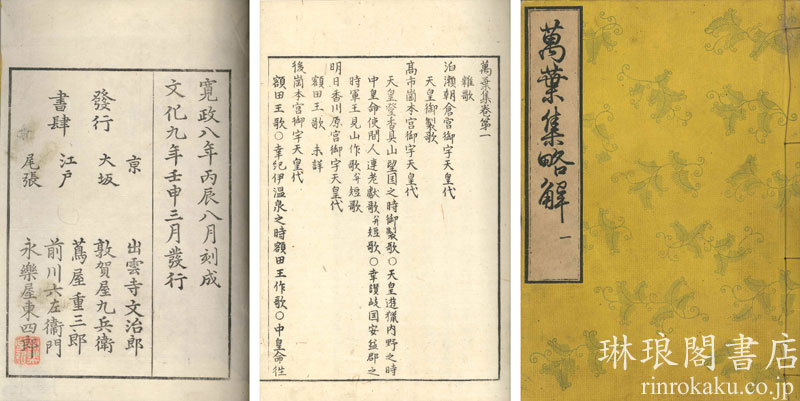 寛政八年丙辰八月刻成
文化九年壬申三月發行
發行
書肆
京
出雲寺文治郎
大坂
敦賀屋九兵衛
江戸
蔦屋重三郎
前川六左衛門
尾張
永樂屋東四郎
萬葉集卷第一
雜歌
泊瀬朝倉宮御宇天皇代
天皇御製歌
高市崗本宮御宇天皇代
天皇登香具山望国之時御製歌〇天皇遊獵内野之時
中皇命使間人連老獻歌并短歌〇幸讃岐国安益郡之
時軍王見山作歌并短歌
明日香川原宮御宇天皇代
額田王歌 未詳
後崗本宮御宇天皇代
額田王歌〇幸紀伊温泉之時額田王作歌〇中皇命徃
萬葉集略解
一
琳琅閣書店
rinrokaku.co.jp